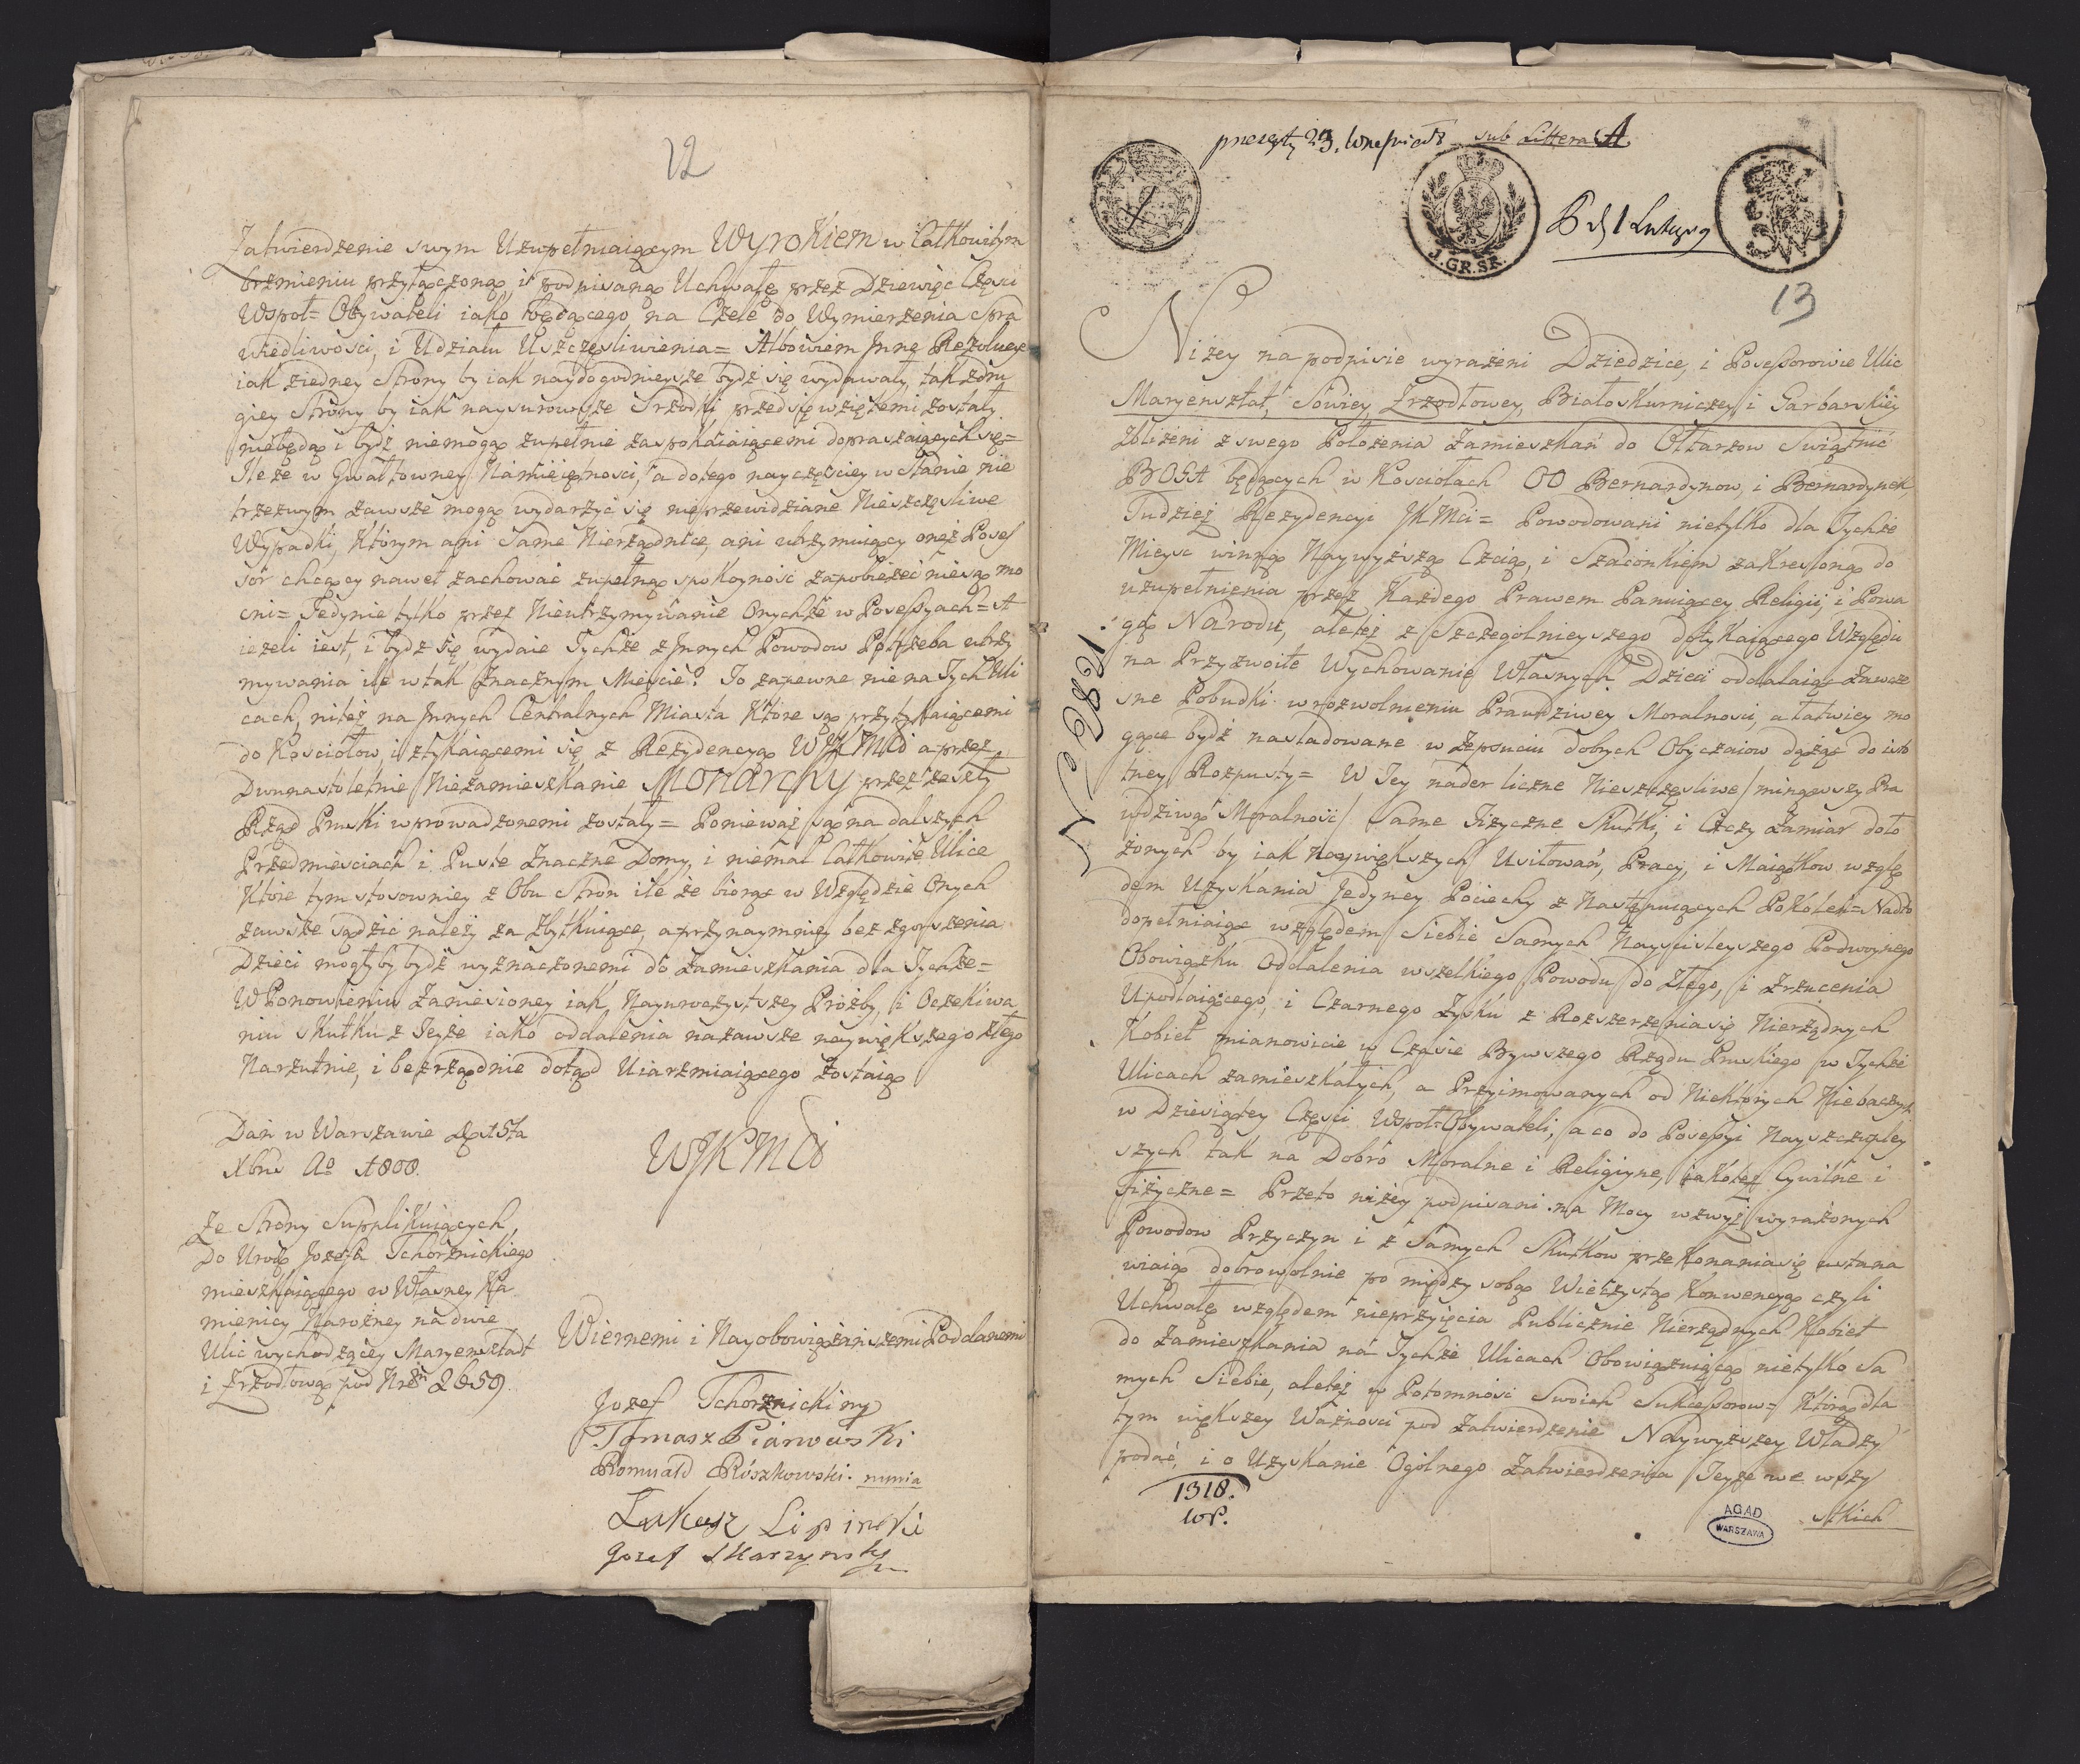 12
Zatwierdzenie swym Uzupełniaiącym Wyrokiem w Całkowitym
brzmieniu przyłączoną, i podpisaną Uchwałę przez Dziewięć Częsci
Wspoł= Obywateli iako będącego na Czele do Wymierzenia Spra
wiedliwosci, i Udziału Uszczęsliwienia= Albowiem Inne Rezolucye
iak ziedney Strony by iak naydogodnieysze bydź się wydawały, tak zdru
giey Strony by iak naysurowsze Srzodki przedsięwziętemi zostały
niebędą i bydź niemogą zupełnie zaspokaiaiącemi dopraszaiących się=
Ileże w Gwałtowney Namiętnosci, a dotego nayczęsciey w stanie nie
trzezwym zawsze mogą wydarzyć się nieprzewidziane Nieszczęsliwe
Wypadki, Którym ani Same Nierządnice, ani utrzymuiący onęż Poses
sor chcący nawet zachować zupełną spokoyność zapobieżeć niesą mo
cni= Jedynie tylko przez Nieutrzymywanie Onychże w Possesyach= A
ieżeli iest, i bydź się wydaie Tychże z Innych Powodow Potrzeba utrzy
mywania ile w tak Znacznym Miescie? To zapewne nie na Tych Uli
cach, nitéż na Innych Centralnych Miasta Które są przytykaiącemi
do Kosciołow, i stykaiącemi się z Rezydencyą WJKMCi a przez
Dwunastoletnie Niezamieszkanie Monarchy przez zeszły
Rząd Pruski wprowadzonemi zostały= Ponieważ są na dalszych
Przedmiesciach i Puste Znaczne Domy, i niemal Całkowite Ulice
Które tym stosowniey z Obu Stron ile że biorąc w Względzie Onych
zawsze sądzić należy za zbytkuiące, a przynaymniey bez zgorszenia
Dzieci mogłyby bydź wyznaczonemi do Zamieszkania dla Tychże=
W Ponowieniu Zaniesioney iak Nayuroczystszey Prożby, i Oczekiwa
niu skutku z Teyże iako oddalenia nazawsze naywiększego złego
Narzutnie, i bezrządnie dotąd Uiarzmiaiącego Zostaią
Dań w Warszawie d. 15ta
Xbris Ao 1808.
WJKMCi
Ze Strony Supplikuiących
Do Urodz Jozefa Tchorznickiego
mieszkaiącego w Własney Ka
mienicy Narożney na dwie
Ulic wychodzącey Maryensztadt
i Zrzodłową pod Nrem 2659.
Wiernemi i Nayobowiązańszemi Poddanemi
Jozef Tchorznicki mp
Tomasz Piarwuski
Romuald Rószkowski.
Łukasz Lipinski
Jozef Skarzynski
sub Littera A
J.GR.SR.
13
Niżey na podpisie wyrażeni Dziedzice, i Possessorowie Ulic
Maryensztat, Sowiey, Zrzodłowey, Białoskurniczey, i Garbarskiey
zbliżeni z swego Położenia Zamieszkań do Ołtarzow Swiątnic
BOGA będących w Kosciołach OO Bernardynow, i Bernardynek
Tudzież Rezydencyi JKMci= Powodowani nietylko dla Tychże
Mieysc winną Naywyższą Czcią, i Szacunkiem zakresloną do
uzupełnienia przez Każdego Prawem Panuiącey Religii, i Powa
gą Narodu, aleteż z Szczegolnieyszego dotykaiącego Względu
na Przyzwoite Wychowanie Własnych Dzieci oddalaiąc Zawcze
sne Pobudki w rozwolnieniu Prawdziwey Moralnosci, a łatwiey mo
gące bydź nasladowane w Zepsuciu dobrych Obyczaiow dążąc do isto
tney Rozpusty= W Jey nader liczne Nieszczęsliwe/minąwszy Pra
wdziwą Moralność/ Same Fizyczne Skutki, i Czczy Zamiar doło
żonych by iak Naywiększych Usiłowań, Pracy, i Maiątkow wzglę
dem Uzyskania Jedyney Pociechy z Następuiących Pokoleń= Nadto
dopełniaiąc względem Siebie Samych Nayscisleyszego Podwoynego
Obowiązku Oddalenia wszelkiego Powodu do Złego, i Zrzucenia
Upodlaiącego, i Czarnego Zysku z Rozszerzenia się Nierządnych
Kobiet mianowicie w Czasie Bywszego Rządu Pruskiego w Tychże
Ulicach zamieszkałych, a Przyimowanych od Niektórych Niebacznych
w Dziesiątey Częsci Wspoł-Obywateli, a co do Possesyi Nayszczupley
szych tak na Dobro Moralne i Religiyne, iakoteż Cywilne i
Fizyczne= Przeto niżey podpisani na Mocy wzwyż wyrażonych
Powodow Przyczyn i z Samych Skutkow przekonania się ustana
wiaią dobrowolnie po między sobą Wieczystą Konwencyą czyli
Uchwałę względem nieprzyięcia Publicznie Nierządnych Kobiet
do Zamieszkania na Tychże Ulicach Obowiązuiącą nietylko Sa
mych Siebie, aleteż w Potomnosci Swoich Sukcessorow= Którą dla
tym większey Ważnosci pod Zatwierdzenie Naywyższey Władzy
podać, i o Uzyskanie Ogolnego Zatwierdzenia Teyże we wszy
stkich
N 2821.
1318.
WP.
AGAD
WARSZAWA